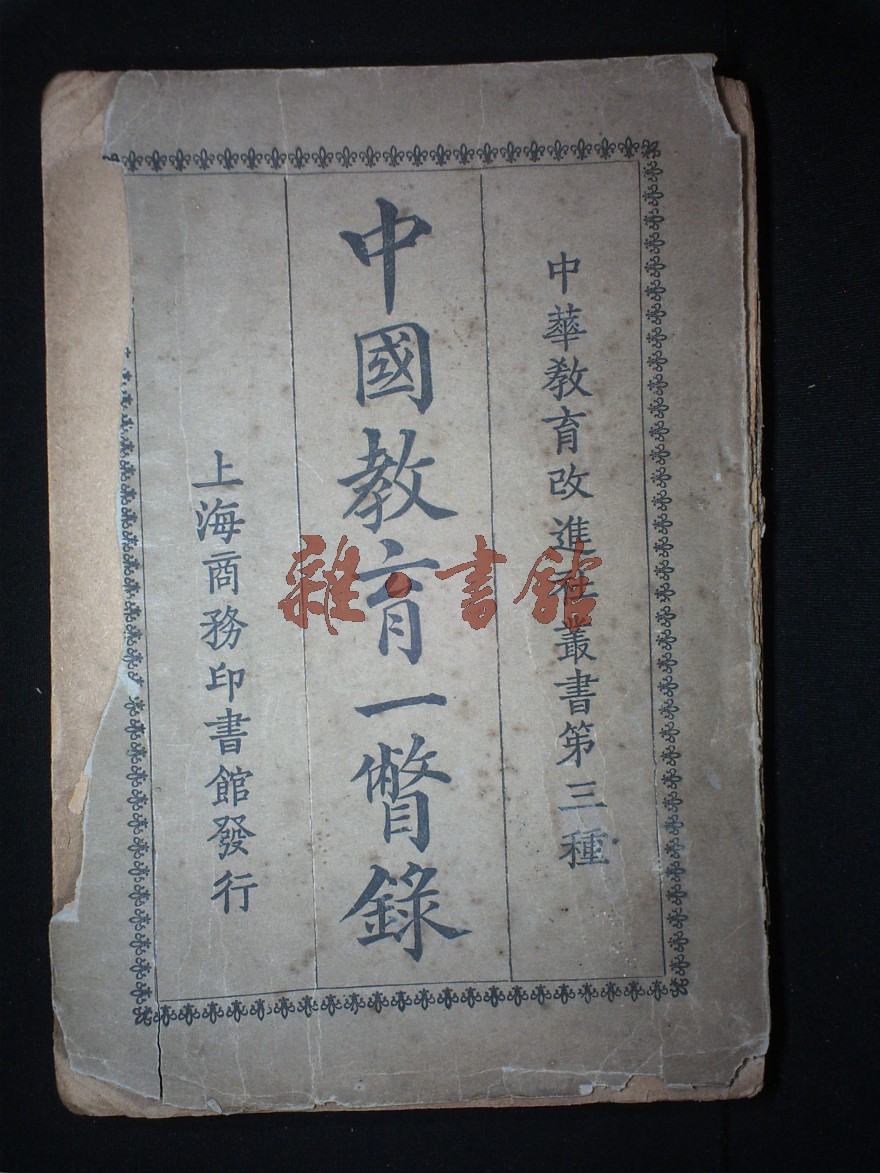 中華教育改進社叢書第三種
中國教育一瞥錄
上海商務印書館發行
雜·書館